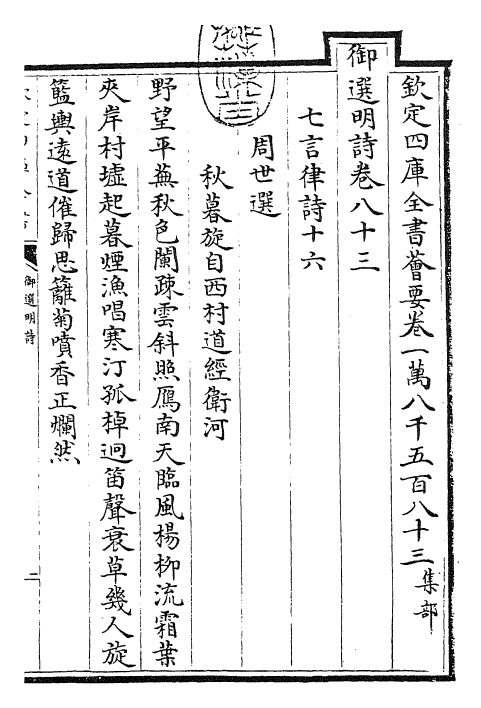 欽定四庫全書薈要卷一萬八千五百八十三集部
御選明詩卷八十三
七言律詩十六
周世選
秋暮旋自西村道經衛河
野望平蕪秋色闌疎雲斜照鴈南天臨風楊柳流霜葉
夾岸村墟起暮煙漁唱寒汀孤棹迥笛聲衰草幾人旋
籃輿遠道催歸思籬菊噴香正爛然
御選明詩